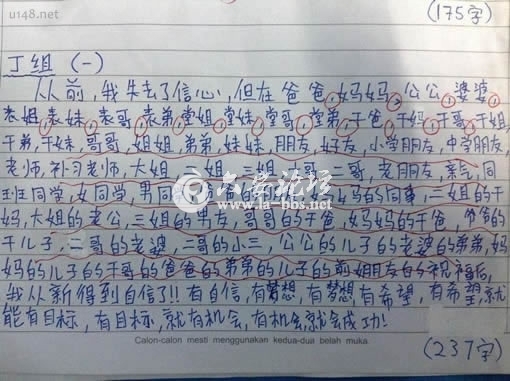 u148.net
(175字)
丁组 (一)
从前,我失去了信心,但在爸爸,妈妈,公公,婆婆,
表姐,表妹,表哥,表弟,堂姐,堂妹,堂哥,堂弟,干爸,干妈,干哥,干姐,
干弟,干妹,哥哥,姐姐,弟弟,妹妹,朋友,好友,小学朋友,中学朋友,
老师,补习老师,大姐,二姐,三姐,大哥,二哥,老朋友,亲戚,同
班同学,女同学,男同 妈的同事,三姐的干
妈,大姐的老公,三姐的男友,哥哥的干爸,妈妈的干爸,爷爷的
干儿子,二哥的老婆,二哥的小三,公公的儿子的老婆的弟弟,妈
妈的儿子的干哥的爸爸的弟弟的儿子的前女朋友的祝福后,
我从新得到自信了!!有自信,有梦想,有梦想有希望,有希望,就
能有目标,有目标,就有机会,有机会就会成功!
Calon-calon mesti menggunakan kedua-dua belah muka.
(237字)
六学论坛
www.la-bbs.net